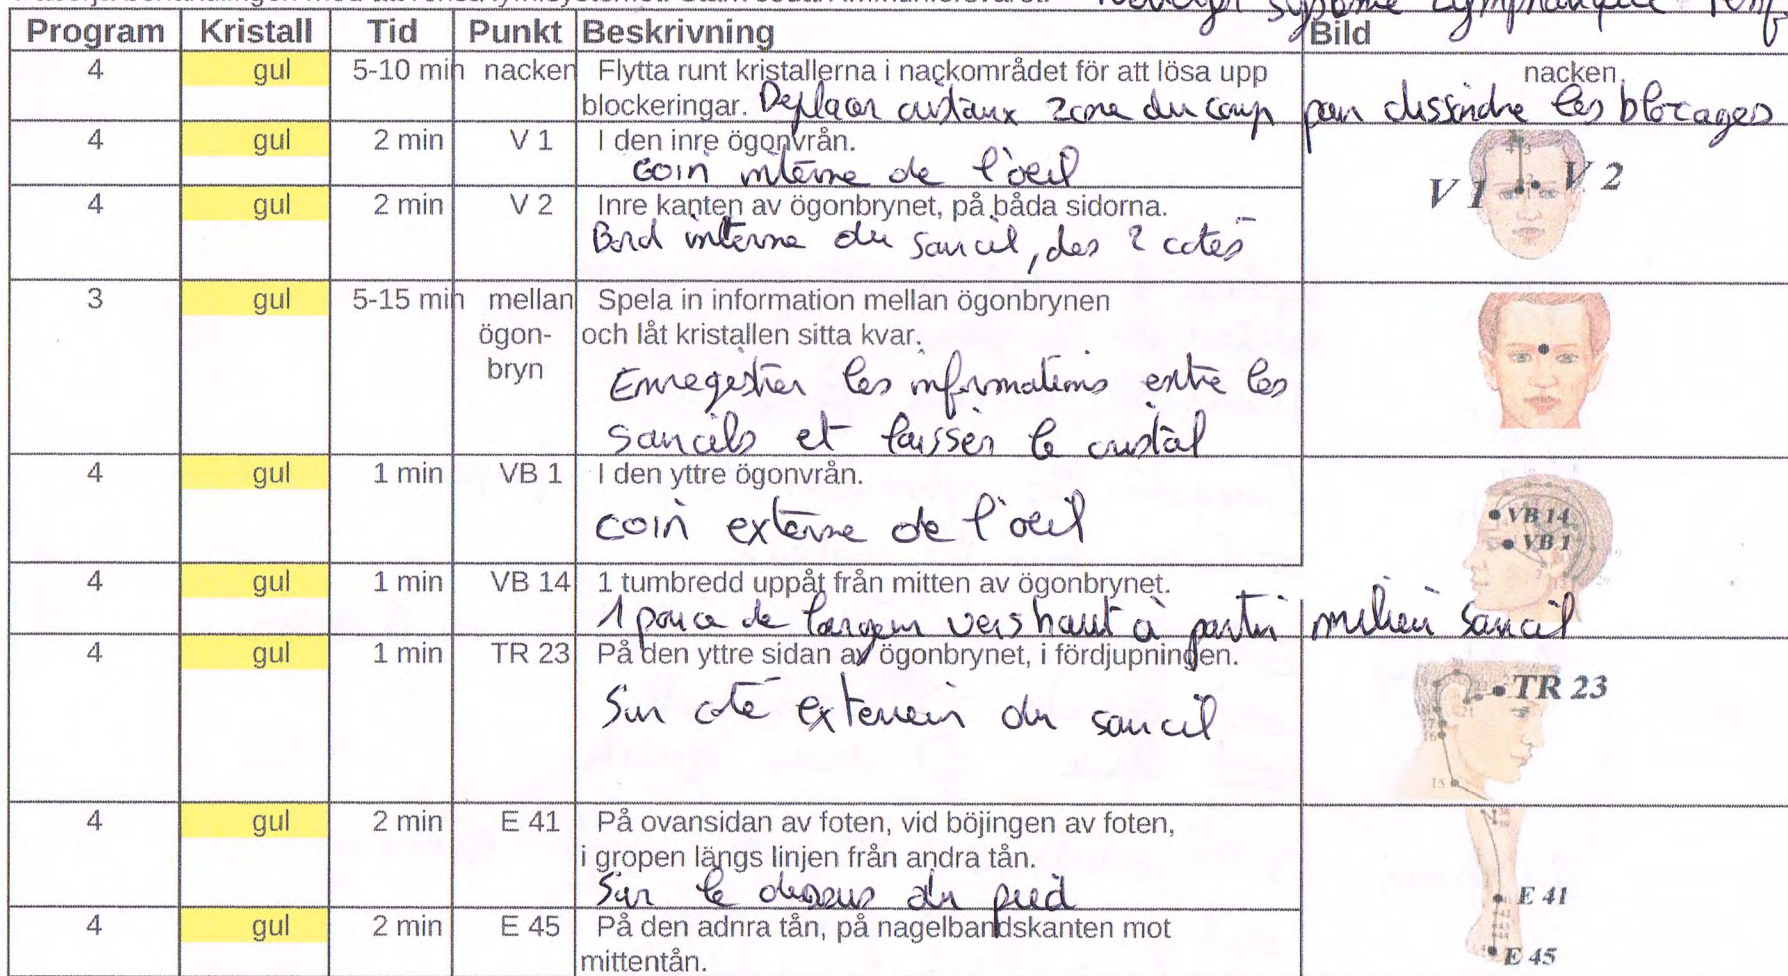 système lymphatique
Program Kristall Tid Punkt Beskrivning Bild
4 gul 5-10 min nacken Flytta runt kristallerna i nackområdet för att lösa upp nacken
blockeringar. Deplacer cristaux zone du coup pour dissoudre les blocages
4 gul 2 min V 1 I den inre ögonvrån.
coin interne de l'oeil
V 1 V 2
4 gul 2 min V 2 Inre kanten av ögonbrynet, på båda sidorna.
Bord interne du sourcil, des 2 cotés
3 gul 5-15 min mellan Spela in information mellan ögonbrynen
ögon- och låt kristallen sitta kvar.
bryn
Enregistrer les informations entre les
sourcils et laisser le cristal
4 gul 1 min VB 1 I den yttre ögonvrån.
coin externe de l'oeil
VB 14
VB 1
4 gul 1 min VB 14 1 tumbredd uppåt från mitten av ögonbrynet.
1 pouce de largeur vers haut à partir milieu sourcil
4 gul 1 min TR 23 På den yttre sidan av ögonbrynet, i fördjupningen.
TR 23
Sur coté exterieur du sourcil
4 gul 2 min E 41 På ovansidan av foten, vid böjingen av foten,
i gropen längs linjen från andra tån.
Sur le dessus du pied
E 41
4 gul 2 min E 45 På den adnra tån, på nagelbandskanten mot
mittentån.
E 45